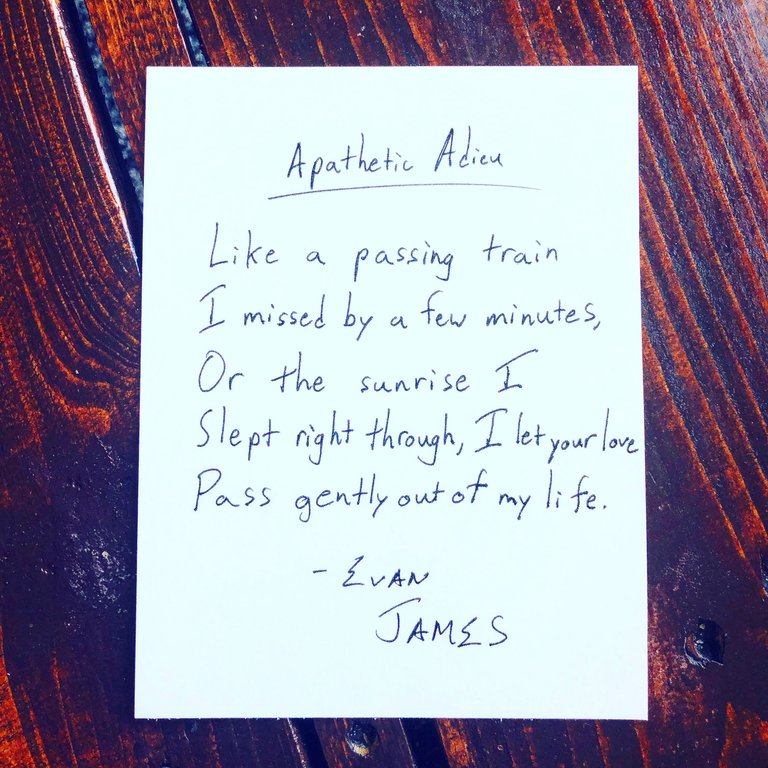 Apathetic Adieu
Like a passing train
I missed by a few minutes,
Or the sunrise I
Slept right through, I let your love
Pass gently out of my life.
- EVAN
JAMES